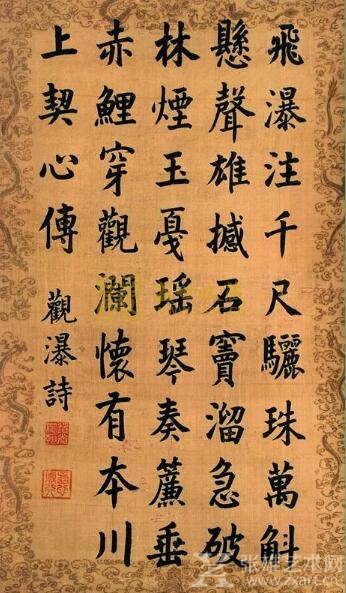 飛瀑注千尺驪珠萬斛
懸聲雄撼石竇溜急破
林煙玉戛瑤琴奏簾垂
赤鯉穿觀瀾懷有本川
上契心傳 觀瀑詩
张雄艺术网
www.zxart.cn